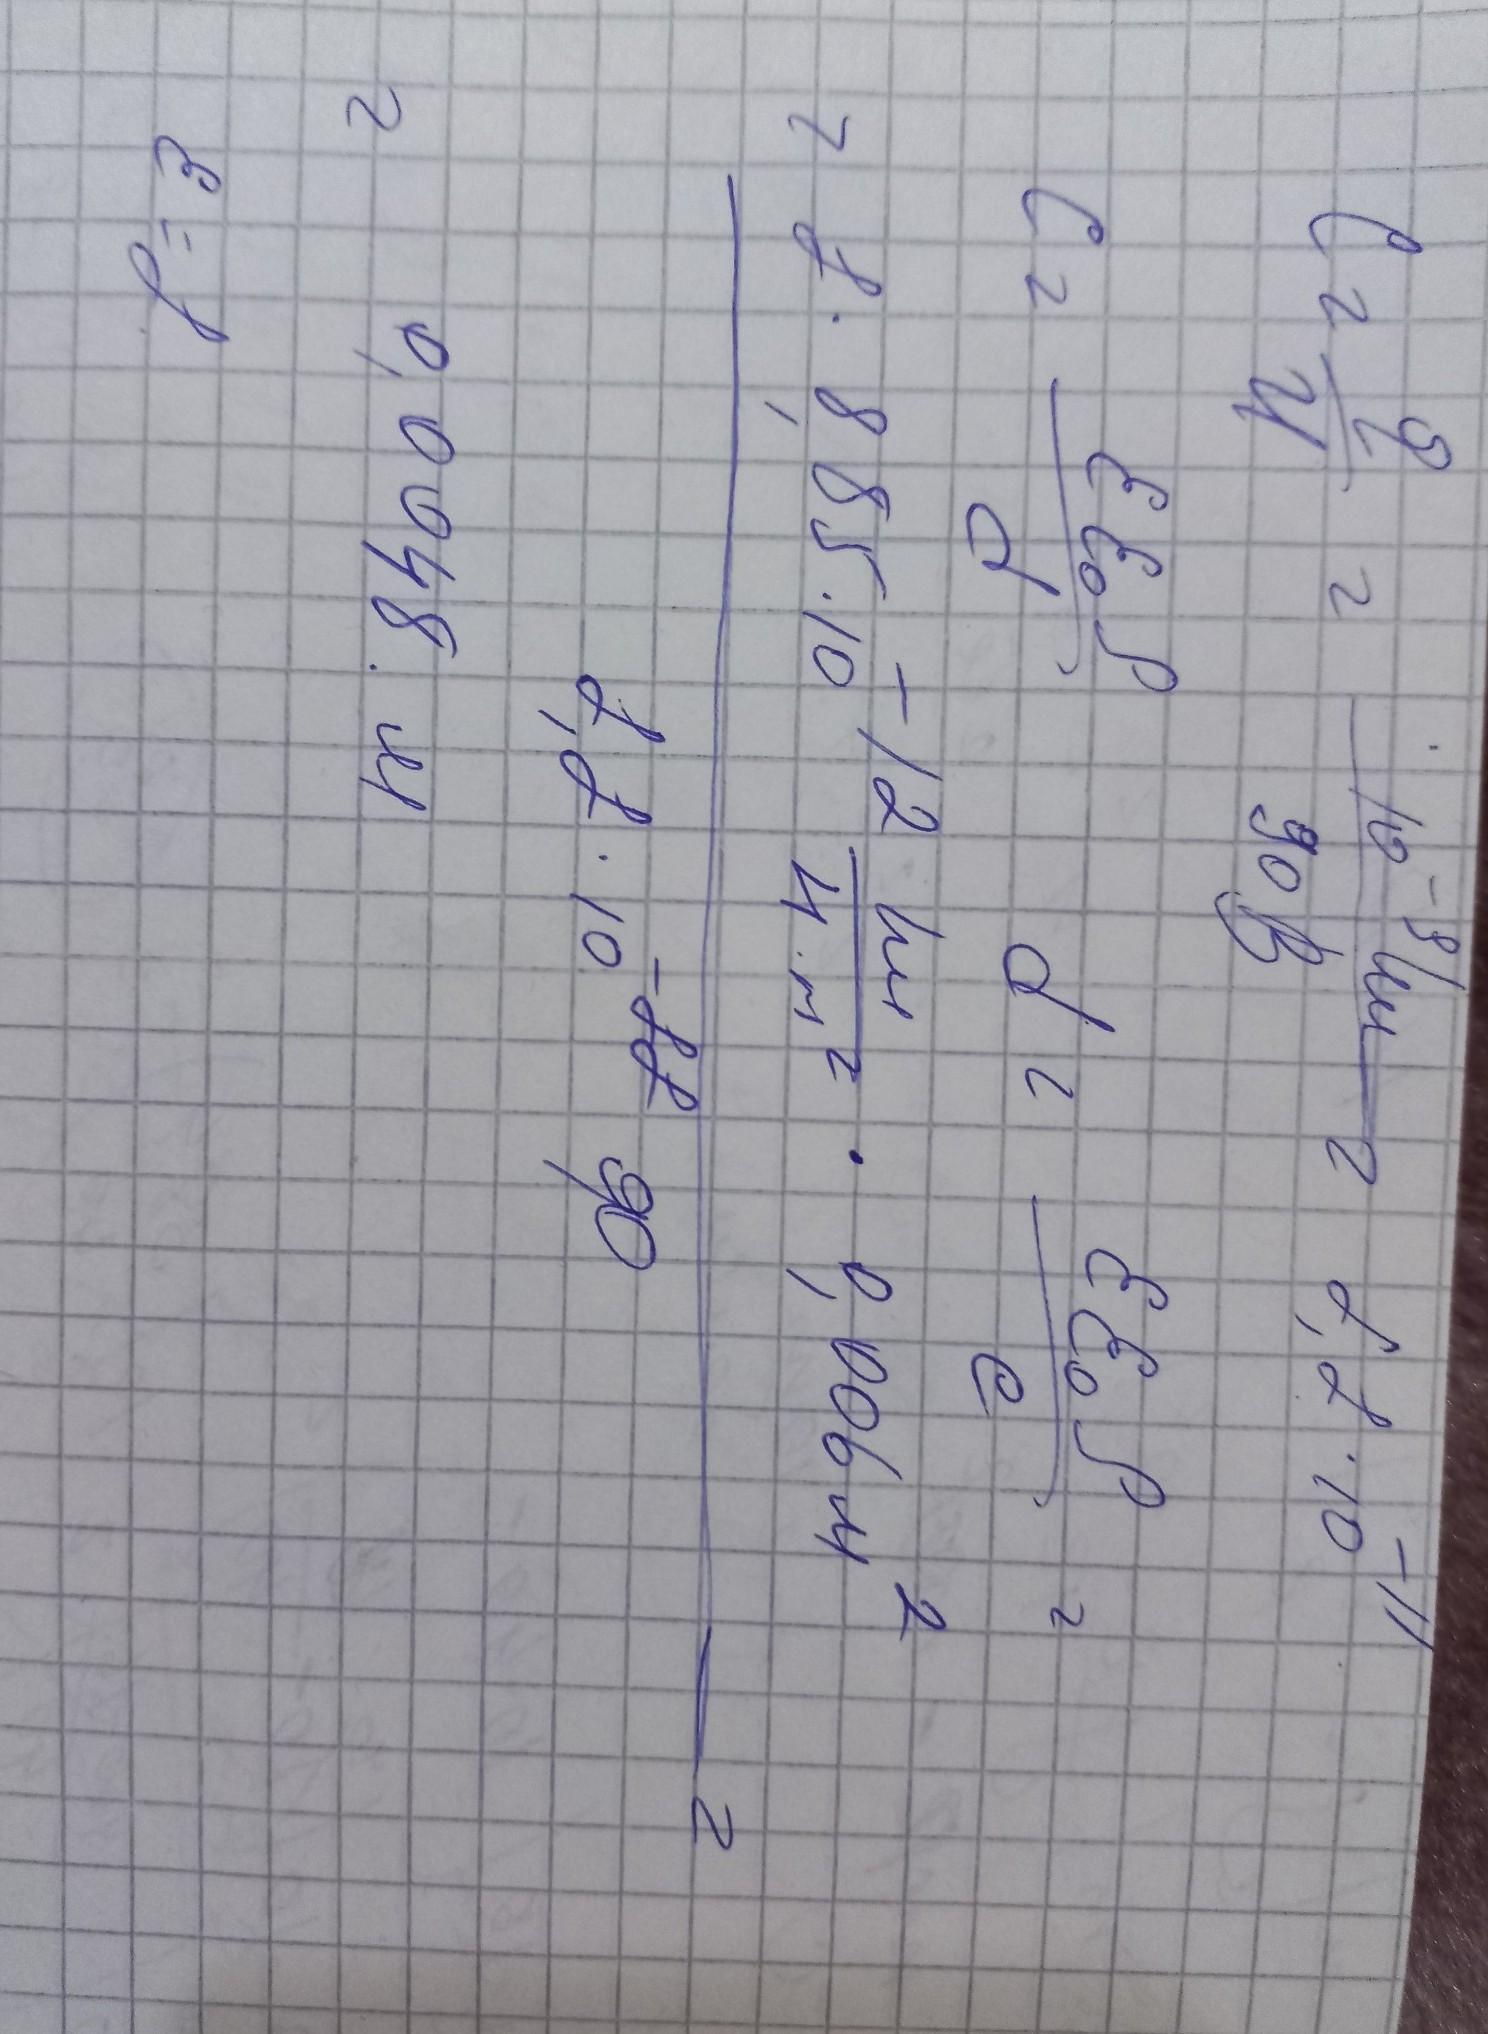 C = q/U = 10^-9 Кл / 90 В = 1,1 · 10^-11
C = εε₀S / d    d = εε₀S / C =
= 1 · 8,85 · 10^-12 Кл / Н·м² · 0,006 м²
1,1 · 10^-11 Ф =
= 0,0048 м
ε = 1